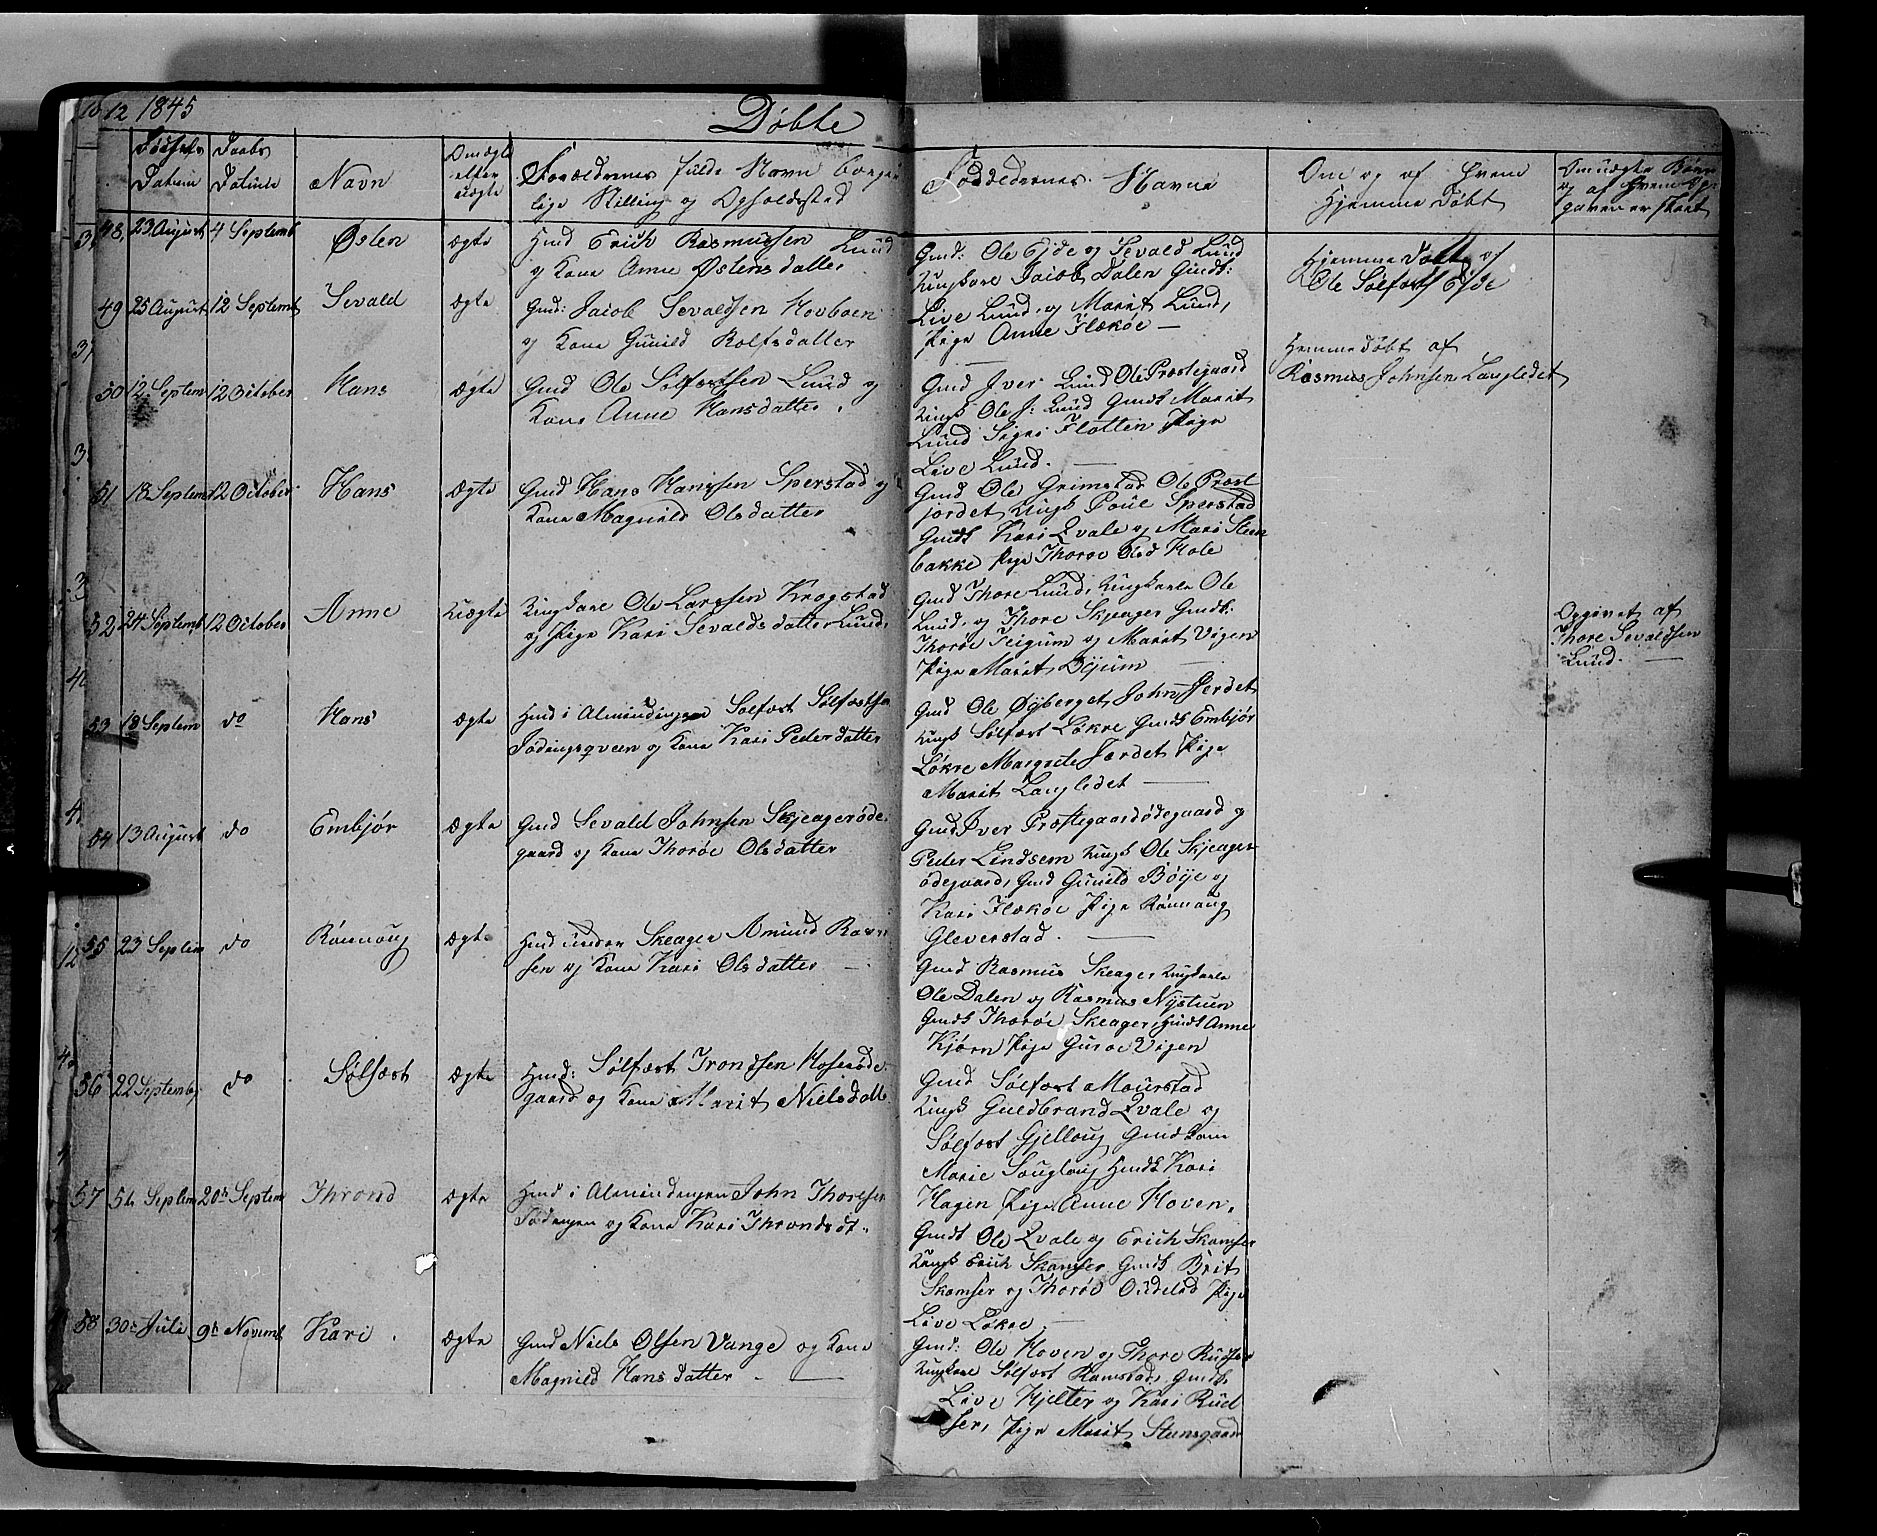 12 1845
Døbte
Fødsels Datum
Daabs Datum
Navn
Om ægte eller uægte
Forældrenes fulde Navn borger
lige Stilling og Opholdssted
Faddernes Navne
Om og af hvem
Hjemmedøbt
Om uægte Børn
og af hvem Op
gaven er skeet
48. 23 August 4 Septemb Østen ægte Hmd Erich Rasmussen Lund
og Kone Anne Østensdatter
Gmd: Ole Eide og Sevald Lund
Ungkarl Jacob Dalen Gmdk:
Live Lund og Marit Lund,
Pige Anne Flækøe —
Hjemmedøbt af
Ole Sølfæstss Eide
49 25 August 12 Septemb Sevald ægte Gmd: Jacob Sevaldsen Hovboen
og Kone Gunild Rolfsdatter
—
Hjemmedøbt af
Rasmus Johnsen Langledet
50 12 Septem 12 October Hans ægte Gmd Ole Sølfestsen Lund og
Kone Anne Hansdatter.
Gmd Iver Lund Ole Præstegaard
Ungk Ole J: Lund Gmdk Marit
Lund Sigri Flatten Pige
Live Lund. —
51 18 Septem 12 October Hans ægte Gmd Hans Hanssen Sperstad og
Kone Magnild Olsdatter
Gmd Ole Grimstad Ole Præst
jordet Ungk Poul Sperstad
Gmdk Kari Qvale og Mari Steen
bakke Pige Thoroe Olsd Hole
52 24 Septemb 12 October Anne Uægte Ungkarl Ole Larssen Krogstad
og Pige Kari Sevaldsdatter Lund.
Gmd Thore Lund, Ungkarle Ole
Lund, og Thore Skjeager Gmdk:
Thorøe Teigum og Marit Vigen
Pige Marit
Opgivet af
Thore Sevaldsen
Lund. —
53 18 Septem do Hans ægte Hmd i Almindingen Sølfæst Sølfæstsen
og Kone Kari Pedersdatter
Gmd Ole Øyberget, John Jordet
Ungk Sølfæst Løkre Gmdk Embjør
Løkre Margrete Jordet Pige
Marit Langledet —
54 13 August do Embjør ægte Gmd Sevald Johnsen Skjeagerøde
gaard og Kone Thorøe Olsdatter
Gmd: Iver Præstegaardsødegaard og
Peder Lindsem Ungk Ole Skjeager
ødegaard, Gmd Gunild Böye og
Kari Flækøe Pige Rønnaug
Gleverstad. —
55 23 Septem do Rønnaug ægte Hmd under Skeager Amund
sen og Kone Kari Olsdatter —
Gmd Rasmus Skeager Ungkarle
Ole Dalen og Rasmus Nystuen
Gmdk Thorøe Skeager, Hmdk Anne
Kjørn Pige Guroe Vigen
56 22 Septemb do Sølfæst ægte Hmd: Sølfæst Trondsen Hoserøde
gaard og Kone Marit Nielsdatt
Gmd Sølfæst Mourstad
Ungk Guldbrand Qvale og
Sølfæst Gjelloug Gmdkone
Marie Sougloug Hmdk Kari
Hagen Pige Anne Hoven.
57 5te Septem 20de Septem Thrond ægte Hmd i Almindingen John Thoresen
og Kone Kari Throndsdt.
Gmdt Ole Qvale og Erich Skamser
Ungk Erich Skamser Gmdk Brit
Skamser og Thorøe Pige
Live Løkre. —
58 30te Juli 9de Novemb Kari. ægte Gmd Niels Olsen Vange og Kone
Magnild Hansdatter —
Gmd: Ole Hoven og Thore Rudser
Ungkarl Sølfæst Ramstad, Gmdk
Live Hjelter og Kari Rud
ser, Pige Marit Steensgaard